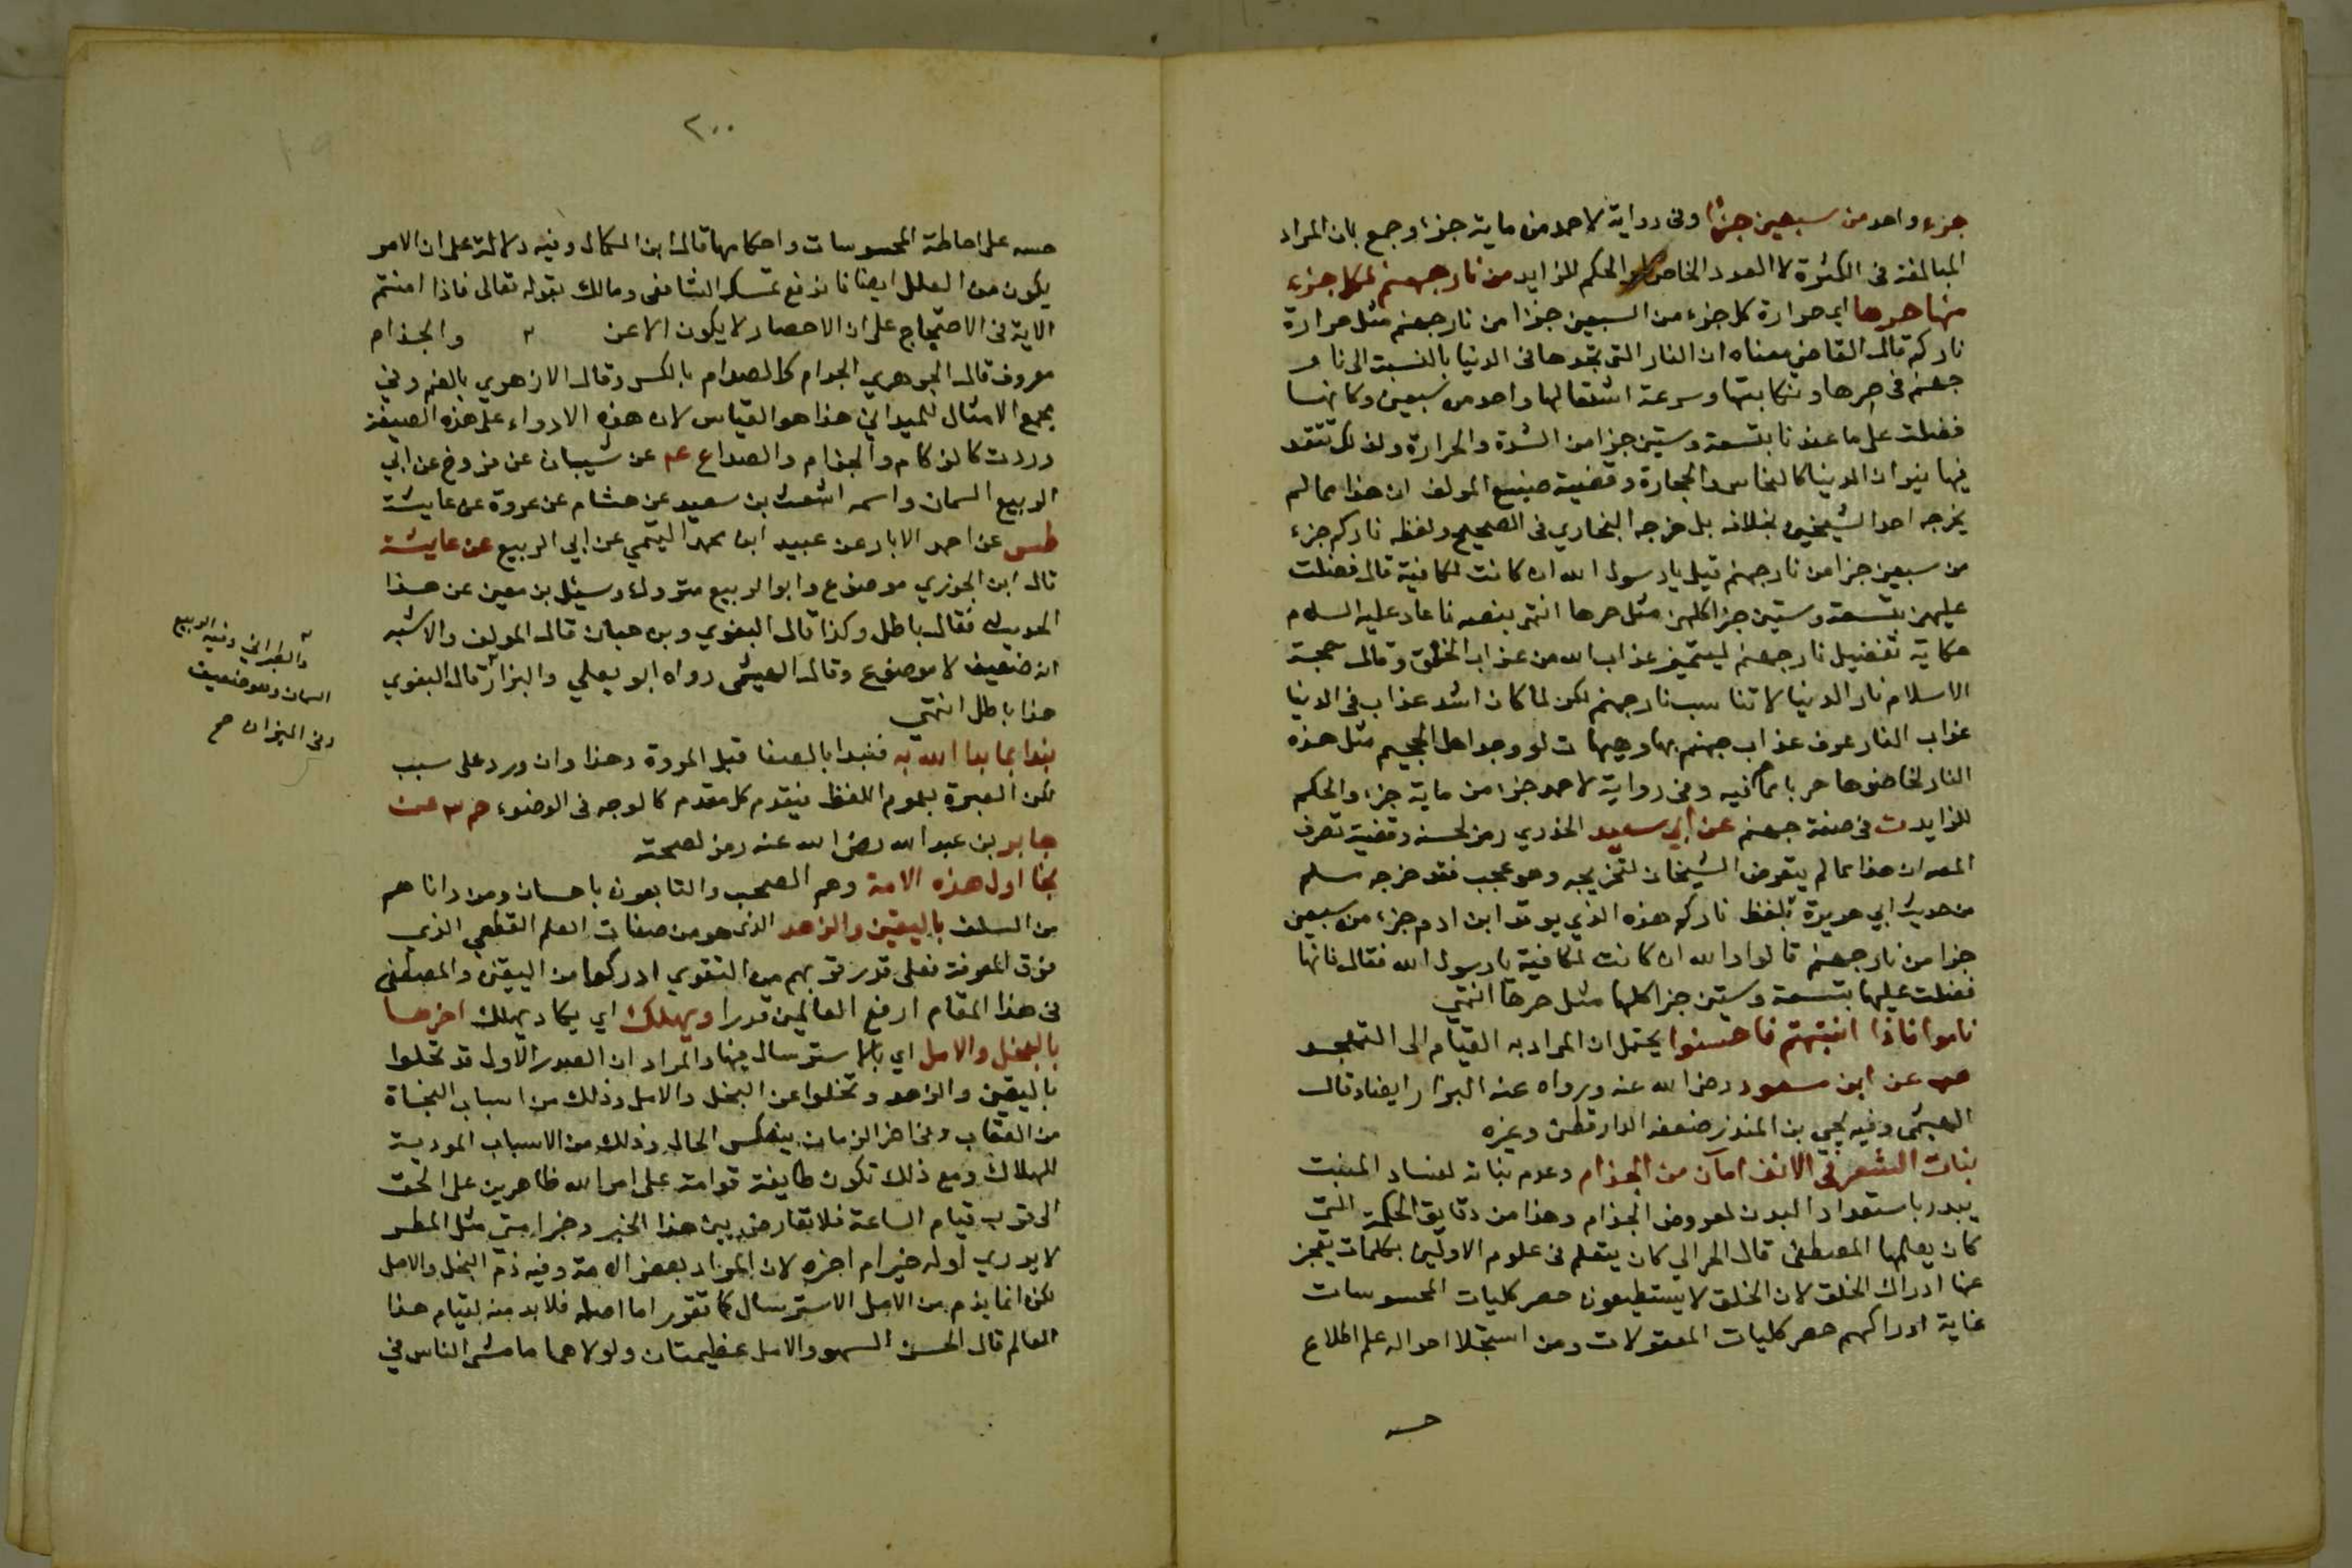 جزء واحد من سبعين جزأ وفى رواية لاحمد من ماية جزء وجمع بان المراد
المبالغة فى الكثرة لا العدد الخاص والحكم للزايد من نار جهنم لكل جزء
منها حرها اي حرارة كل جزء من السبعين جزا من نار جهنم مثل حرارة
ناركم قال القاضي معناه ان النار التى تجدها فى الدنيا بالنسبة الى نار
جهنم فى حرها ونكايتها وسرعة اشتعالها واحد من سبعين وكانها
فضلت على ما عندنا بتسعة وستين جزا من الشدة والحرارة ولذلك تتقد
فيها نيران الدنيا كالناس والحجارة وقضية صنيع المولف ان هذا مما لم
يخرجه احد الشيخين بخلافه بل خرجه البخاري فى الصحيح ولفظه ناركم جزء
من سبعين جزا من نار جهنم قيل يا رسول الله ان كانت لكافية قال فضلت
عليهن بتسعة وستين جزا كلهن مثل حرها انتهى بنصه فاعاد عليه السلام
حكاية تفضيل نار جهنم ليتميز عذاب الله من عذاب الخلق وقال حجة
الاسلام نار الدنيا لا تناسب نار جهنم لكن لما كان اشد عذاب فى الدنيا
عذاب النار عرف عذاب جهنم بها وهيهات لو وجد اهل الجحيم مثل هذه
النار لخاضوها هربا مما هم فيه وفى رواية لاحمد جزء من ماية جزء والحكم
للزايد ت فى صفة جهنم عن أبي سعيد الخدري رمز لحسنه وقضية تصرف
المص ان هذا مما لم يتعرض الشيخان لتخريجه وهو عجب فقد خرجه مسلم
من حديث ابي هريرة بلفظ ناركم هذه الذي يوقد ابن ادم جزء من سبعين
جزا من نار جهنم قالوا والله ان كانت لكافية يا رسول الله فقال فانها
فضلت عليها بتسعة وستين جزا كلها مثل حرها انتهي
ناموا فاذا انتبهتم فاحسنوا يحتمل ان المراد به القيام الى التهجد
هب عن ابن مسعود رضي الله عنه ورواه عنه البزار ايضا وقال
الهيثمى وفيه يحيى بن المنذر ضعفه الدارقطنى وغيره
نبات الشعر فى الانف امان من الجذام وعدم نباته لفساد المنبت
يبدر باستعداد البدن لعروض الجذام وهذا من دقايق الحكمة التي
كان يعلمها المصطفى قال الحرالي كان يتعلم فى علوم الاولين بكلمات يعجز
عنها ادراك الخلق لان الخلق لا يستطيعون حصر كليات المحسوسات
غاية ادراكهم حصر كليات المعقولات ومن استجلا احواله علم اطلاع
حسه
٢٠٠
حسه على احاطة المحسوسات واحكامها قال ابن الكمال وفيه دلالة على ان الامر
يكون من العلل ايضا فاندفع تمسك الشافعى ومالك بقوله تعالى فاذا امنتم
الاية فى الاحتجاج على ان الاحصار لا يكون الا عن والجذام
معروف قال الجوهري الجدام كالصدام بالكسر وقال الازهري بالضم وفى
مجمع الامثال للميداني هذا هو القياس لان هذه الادواء على هذه الصيغة
وردت كالزكام والجذام والصداع عم عن شيبان عن فروخ عن ابي
الربيع السمان واسمه اشعث بن سعيد عن هشام عن عروة عن عايشة
طس عن احمد الابار عن عبيد ابن محمد التيمي عن ابي الربيع عن عايشة
قال ابن الجوزي موضوع وابو الربيع متروك وسيئل بن معين عن هذا
الحديث فقال باطل وكذا قال البغوي وبن حبان قال المولف والاشبه
انه ضعيف لا موضوع وقال الهيثمى رواه ابو يعلي والبزار قال البغوي
هذا باطل انتهي
والطبراني وفيه الربيع
السمان وهو ضعيف
وفى الميزان صح
نبدا بما بدا الله به فنبدا بالصفا قبل المروة وهذا وان ورد على سبب
لكن العبرة بعموم اللفظ فيقدم كل مقدم كالوجه فى الوضوء حم ٣ عن
جابر بن عبد الله رضى الله عنه رمز لصحته
نجا اول هذه الامة وهم الصحب والتابعون باحسان ومن داناهم
من السلف باليقين والزهد الذى هو من صفات العلم القطعي الذى
فوق المعرفة فعلى قدر قربهم من التقوي ادركوا من اليقين والمصطفى
فى هذا المقام ارفع العالمين قدرا ويهلك اي يكاد يهلك اخرها
بالبخل والامل اي بالاسترسال فيها والمراد ان الصدر الاول قد تحلوا
باليقين والزهد وتخلوا عن البخل والامل وذلك من اسباب النجاة
من العقاب وفى اخر الزمان ينعكس الحال وذلك من الاسباب المودية
للهلاك ومع ذلك تكون طايفة قوامة على امر الله ظاهرين على الحق
الى قرب قيام الساعة فلا تعارض بين هذا الخبر وخبر امتي مثل المطر
لا يدري اوله خير ام اخره لان المراد بعض الامة وفيه ذم البخل والامل
لكن انما يذم من الامل الاسترسال كما تقرر اما اصله فلا بد منه لقيام هذا
العالم قال الحسن السهو والامل عظيمتان ولولاهما ما مشى الناس في